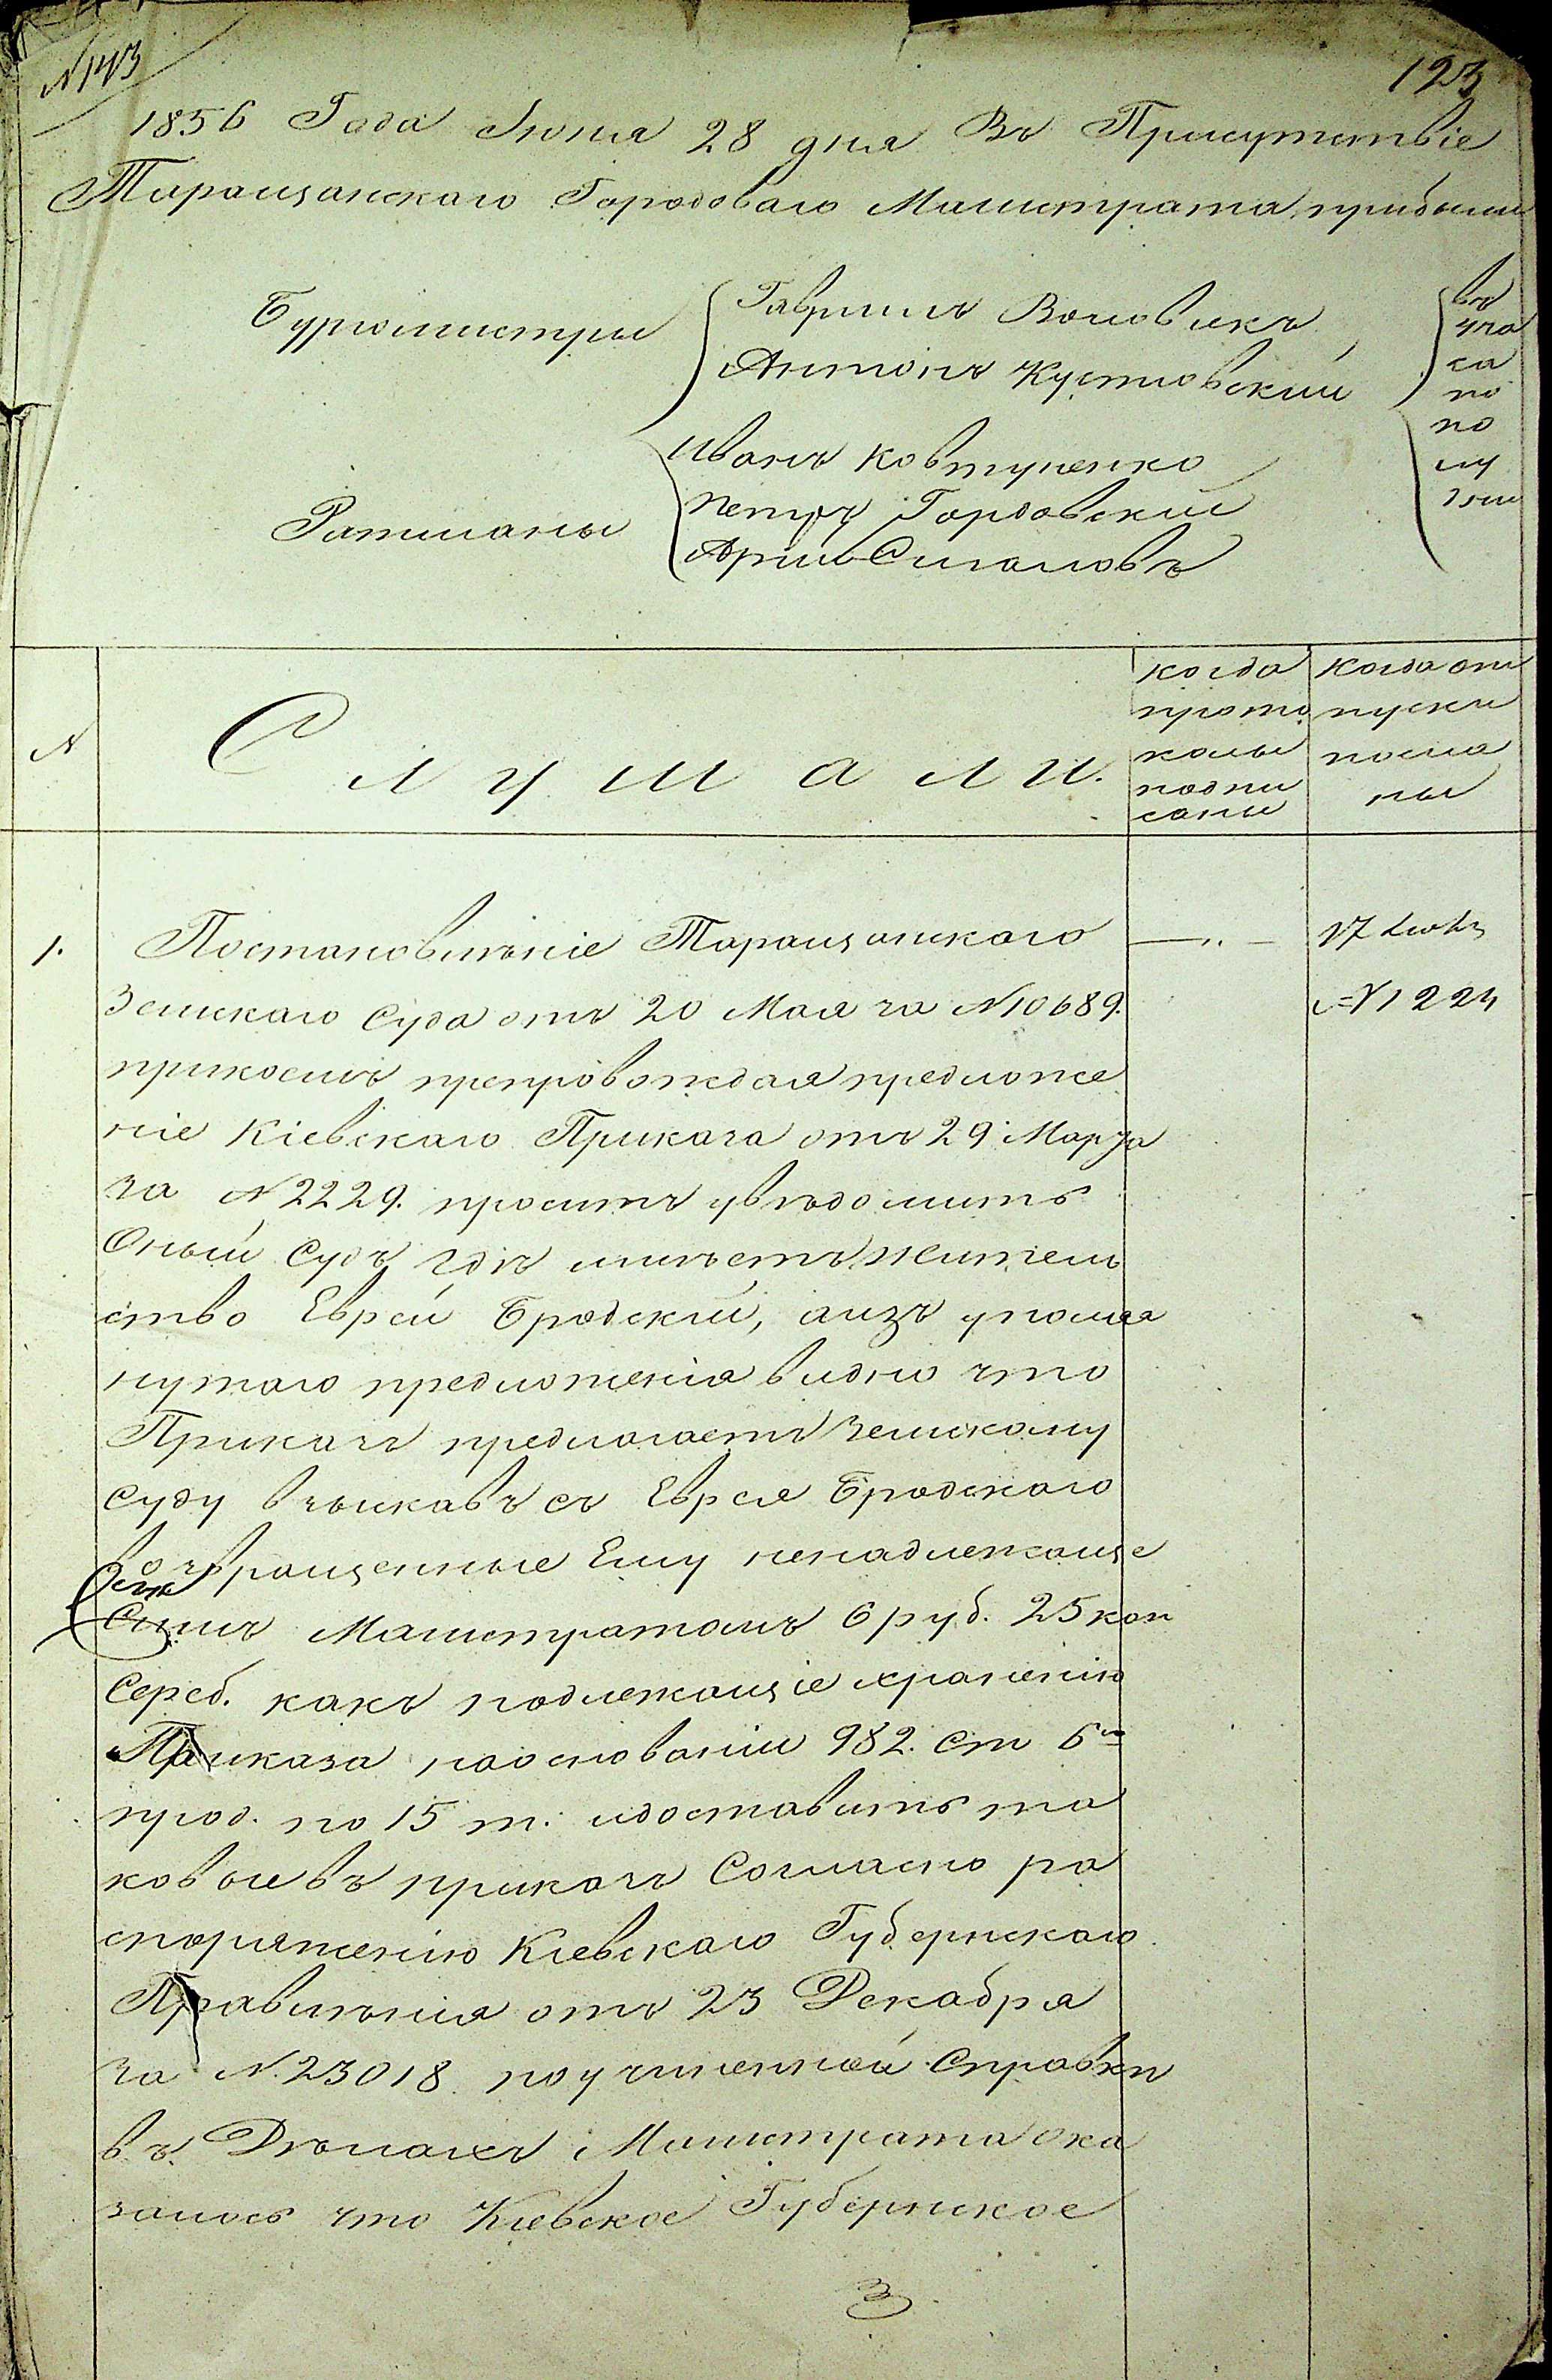 N 143
123
1856 Года Июня 28 дня Въ Присутствіе
Таращанскаго Городоваго Магистрата прибыли
Бургомистры
Гаврилъ Воловикъ
Антонъ Кустовскій
въ
ча
са
по
по
лу
дни
Ратманы
Иванъ Ковтуненко
Петръ Гордовский
Арій Сигаловъ
N
Слушали.
когда
прото
колы
подпи
саны
Когда от
пуски
посла
ны
1.
Постановленіе Таращанскаго
Земскаго Суда отъ 20 Мая за N 10689.
прикоемъ препровождая предложе
ніе Кіевскаго Приказа отъ 29 Марта
за N 2229. проситъ увѣдомить
Оный Судъ гдѣ имѣетъ жител
ство Еврей Бродский, аизъ упомя
нутаго предложенія видно что
Приказъ предлагаетъ Земскому
Суду взыскавъ съ Еврея Бродскаго
возвращенные Ему ненадлежаще
Симъ Магистратомъ 6 руб. 25 коп
Сереб. какъ подлежащіе храненію
Приказа наоснованіи 982. Ст 6го
прод. по 15 т. идоставить та
ковые въ приказъ Согласно ра
споряженію Кіевскаго Губернскаго
Правленія отъ 23 Декабря
за N. 23018. поучиненной Справки
въ Дѣлахъ Магистрата ока
залось что Кіевское Губернское
17 Июля
N 1224